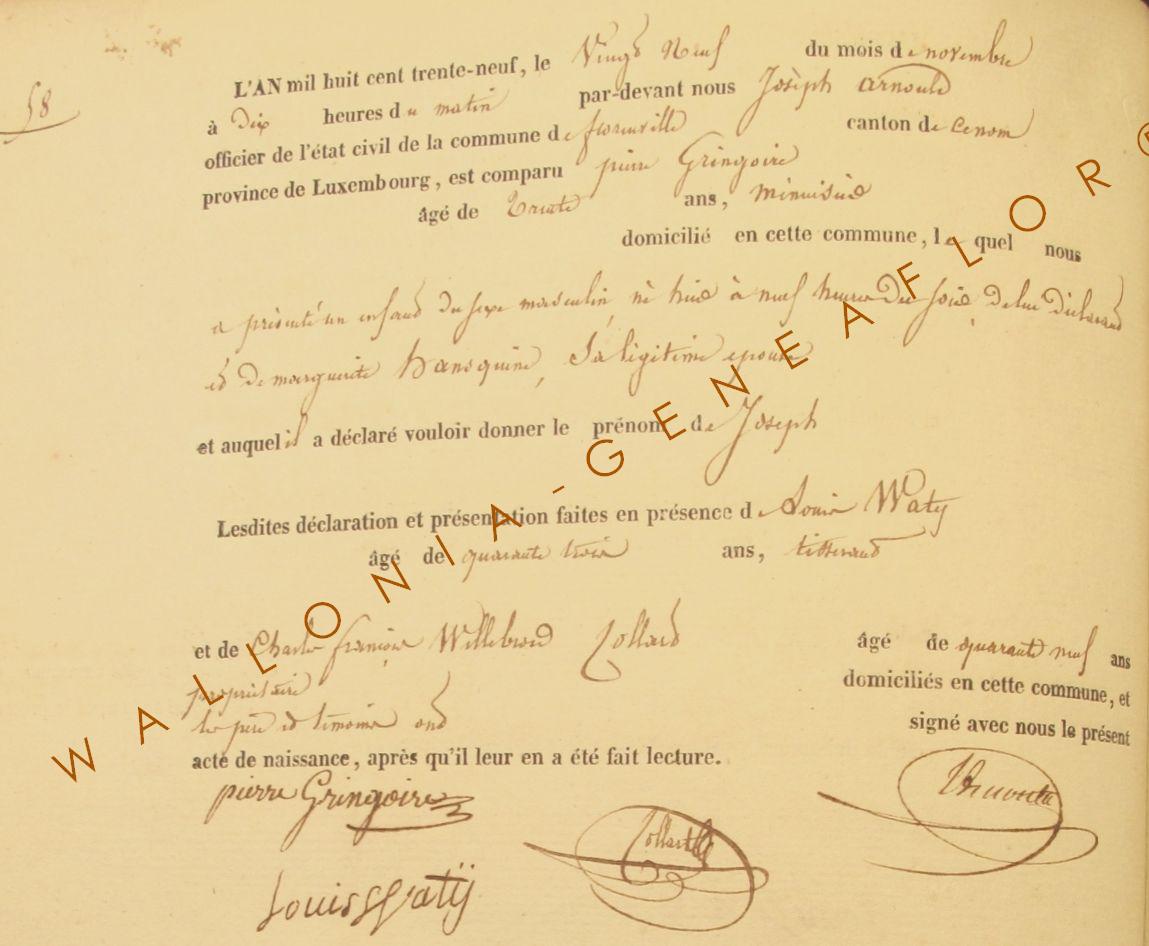 58
L'AN mil huit cent trente-neuf, le Vingt Neuf du mois de novembre
à Dix heures du matin par-devant nous Joséph arnould
officier de l'état civil de la commune de florenville canton de ce nom
province de Luxembourg, est comparu pierre Gringoire
âgé de Trente ans, minuisié
domicilié en cette commune, le quel nous
a présenté un enfant du sexe masculin, né hier à neuf heures Du soir, de lui déclarant
et De marguerite hansquine, Sa légitime epouse
et auquel il a déclaré vouloir donner le prénom de Joseph
Lesdites déclaration et présentation faites en présence de Louis Waty
âgé de quarante trois ans, tisserand
et de Charles françois Willebrord Collard âgé de quarante neuf ans
propriétaire domiciliés en cette commune, et
le père et témoins ont signé avec nous le présent
acte de naissance, après qu'il leur en a été fait lecture.
pierre Gringoire
Collard
Louis Watÿ
WALLONIA-GENEAFLOR®